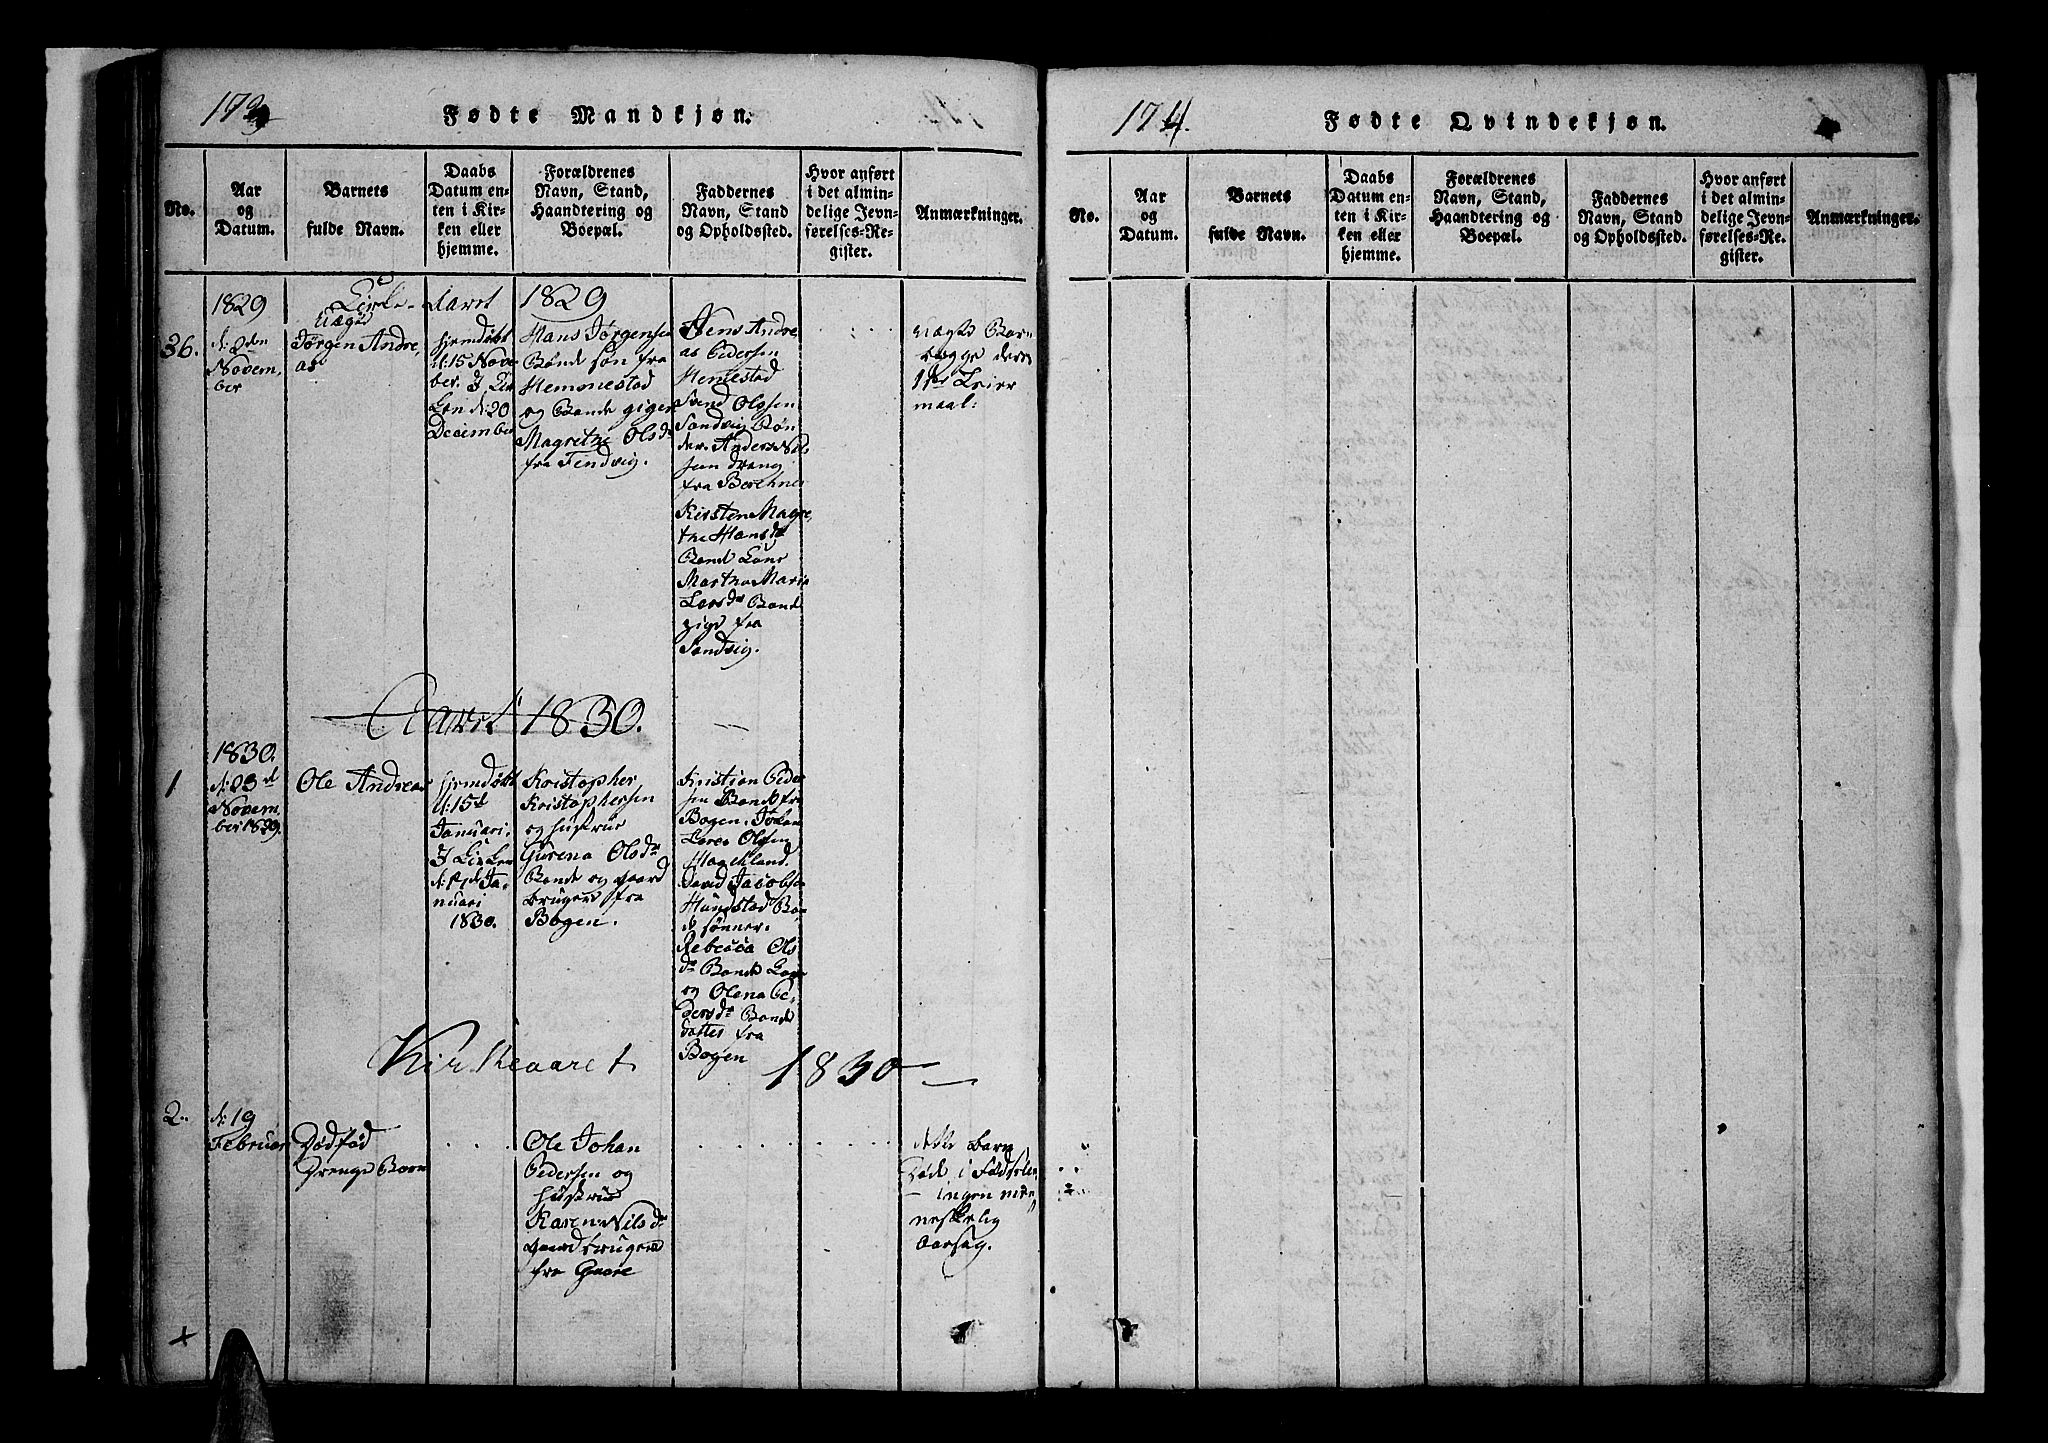 173
Fødte Mandkjøn.
No.
Aar
og
Datum.
Barnets
fulde Navn.
Daabs
Datum en-
ten i Kir-
ken eller
hjemme.
Forældrenes
Navn, Stand,
Haandtering og
Boepæl.
Faddernes
Navn, Stand
og Opholdssted.
Hvor anført
i det almin-
delige Jevn-
førelses-Re-
gister.
Anmærkninger.
Kirke- Aaret 1829
36.
1829
d: 2den
Novem,
ber
Uægte
Jørgen Andre,
as
hjemdøbt
d: 15 Novem
ber. I Kir
ken d: 20
December
Hans Jørgensen
Bonde søn fra
Hemmestad
og Bonde
Magrethe Olsdr
fra
Jens Andre
as Pedersen
Hemestad
Svend Olsen
Sandvig Bøn
der. Anders Nil
sen dreng
fra
Kirsten Magre,
the Hansdr
Bonde Kone
Martha Maria
Larsdr Bonde
pige fra
Sandvig.
uægte Barn
begge deres
1ste Leier
maal:
Aaret 1830.
1
1830.
d: 23d
Novem
ber 1829.
Ole Andreas
hjemdøbt
d: 15d
Januari.
I Kirken
Ja,
nuari
1830.
Kristopher
Kristophersen
og hustrue
Gurena Olsdr
Bonde og gaard
bruger fra
Bogen.
Kristian Peder
sen Bonde fra
Bogen. Johan
Olsen
David Jacobsen
Hundstad Bø,
sønner.
Rebecca Ols
dr Bonde Kone
og Olena Pe,
dersdr Bonde
datter fra
Bogen
Kirkeaaret 1830
2.
d: 19
Februar
Dødfød
Drenge Barn
Ole Johan
Pedersen og
hustrue
Karen Nilsdr
gaardbruger
fra Gaare
dette barn
døde i Fødselen
ingen men
neskelig
aarsag.
174.
Fødte Qvindekjøn.
No.
Aar
og
Datum.
Barnets
fulde Navn.
Daabs
Datum en-
ten i Kir-
ken eller
hjemme.
Forældrenes
Navn, Stand,
Haandtering og
Boepæl.
Faddernes
Navn, Stand
og Opholdssted.
Hvor anført
i det almin-
delige Jevn-
førelses-Re-
gister.
Anmærkninger.